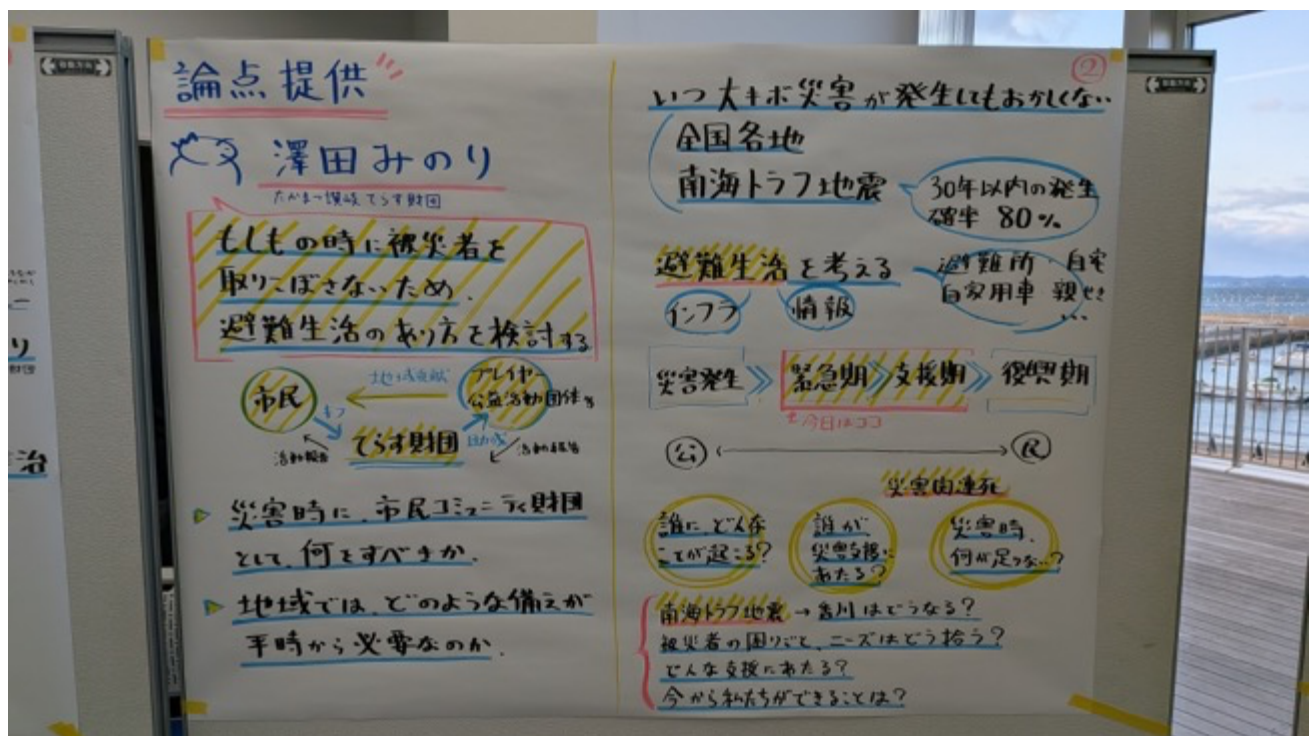 論点提供
澤田みのり
たかまつ讃岐てらす財団
もしもの時に被災者を
取りこぼさないため、
避難生活のあり方を検討する
市民
地域貢献
プレイヤー
公益活動団体等
キフ
てらす財団
助成
活動報告
活動報告
災害時に、市民コミュニティ財団
として、何をすべきか、
地域では、どのような備えが
平時から必要なのか、
②
いつ大キボ災害が発生してもおかしくない
全国各地
南海トラフ地震
30年以内の発生
確率 80%
避難生活を考える
避難所 自宅
自家用車 親せき
...
インフラ
情報
災害発生
緊急期
支援期
復興期
今日はココ
公
民
災害関連死
誰に、どんな
ことが起こる?
誰が
災害支援に
あたる?
災害時、
何が足りない?
南海トラフ地震→香川はどうなる?
被災者の困りごと、ニーズはどう拾う?
どんな支援にあたる?
今から私たちができることは?